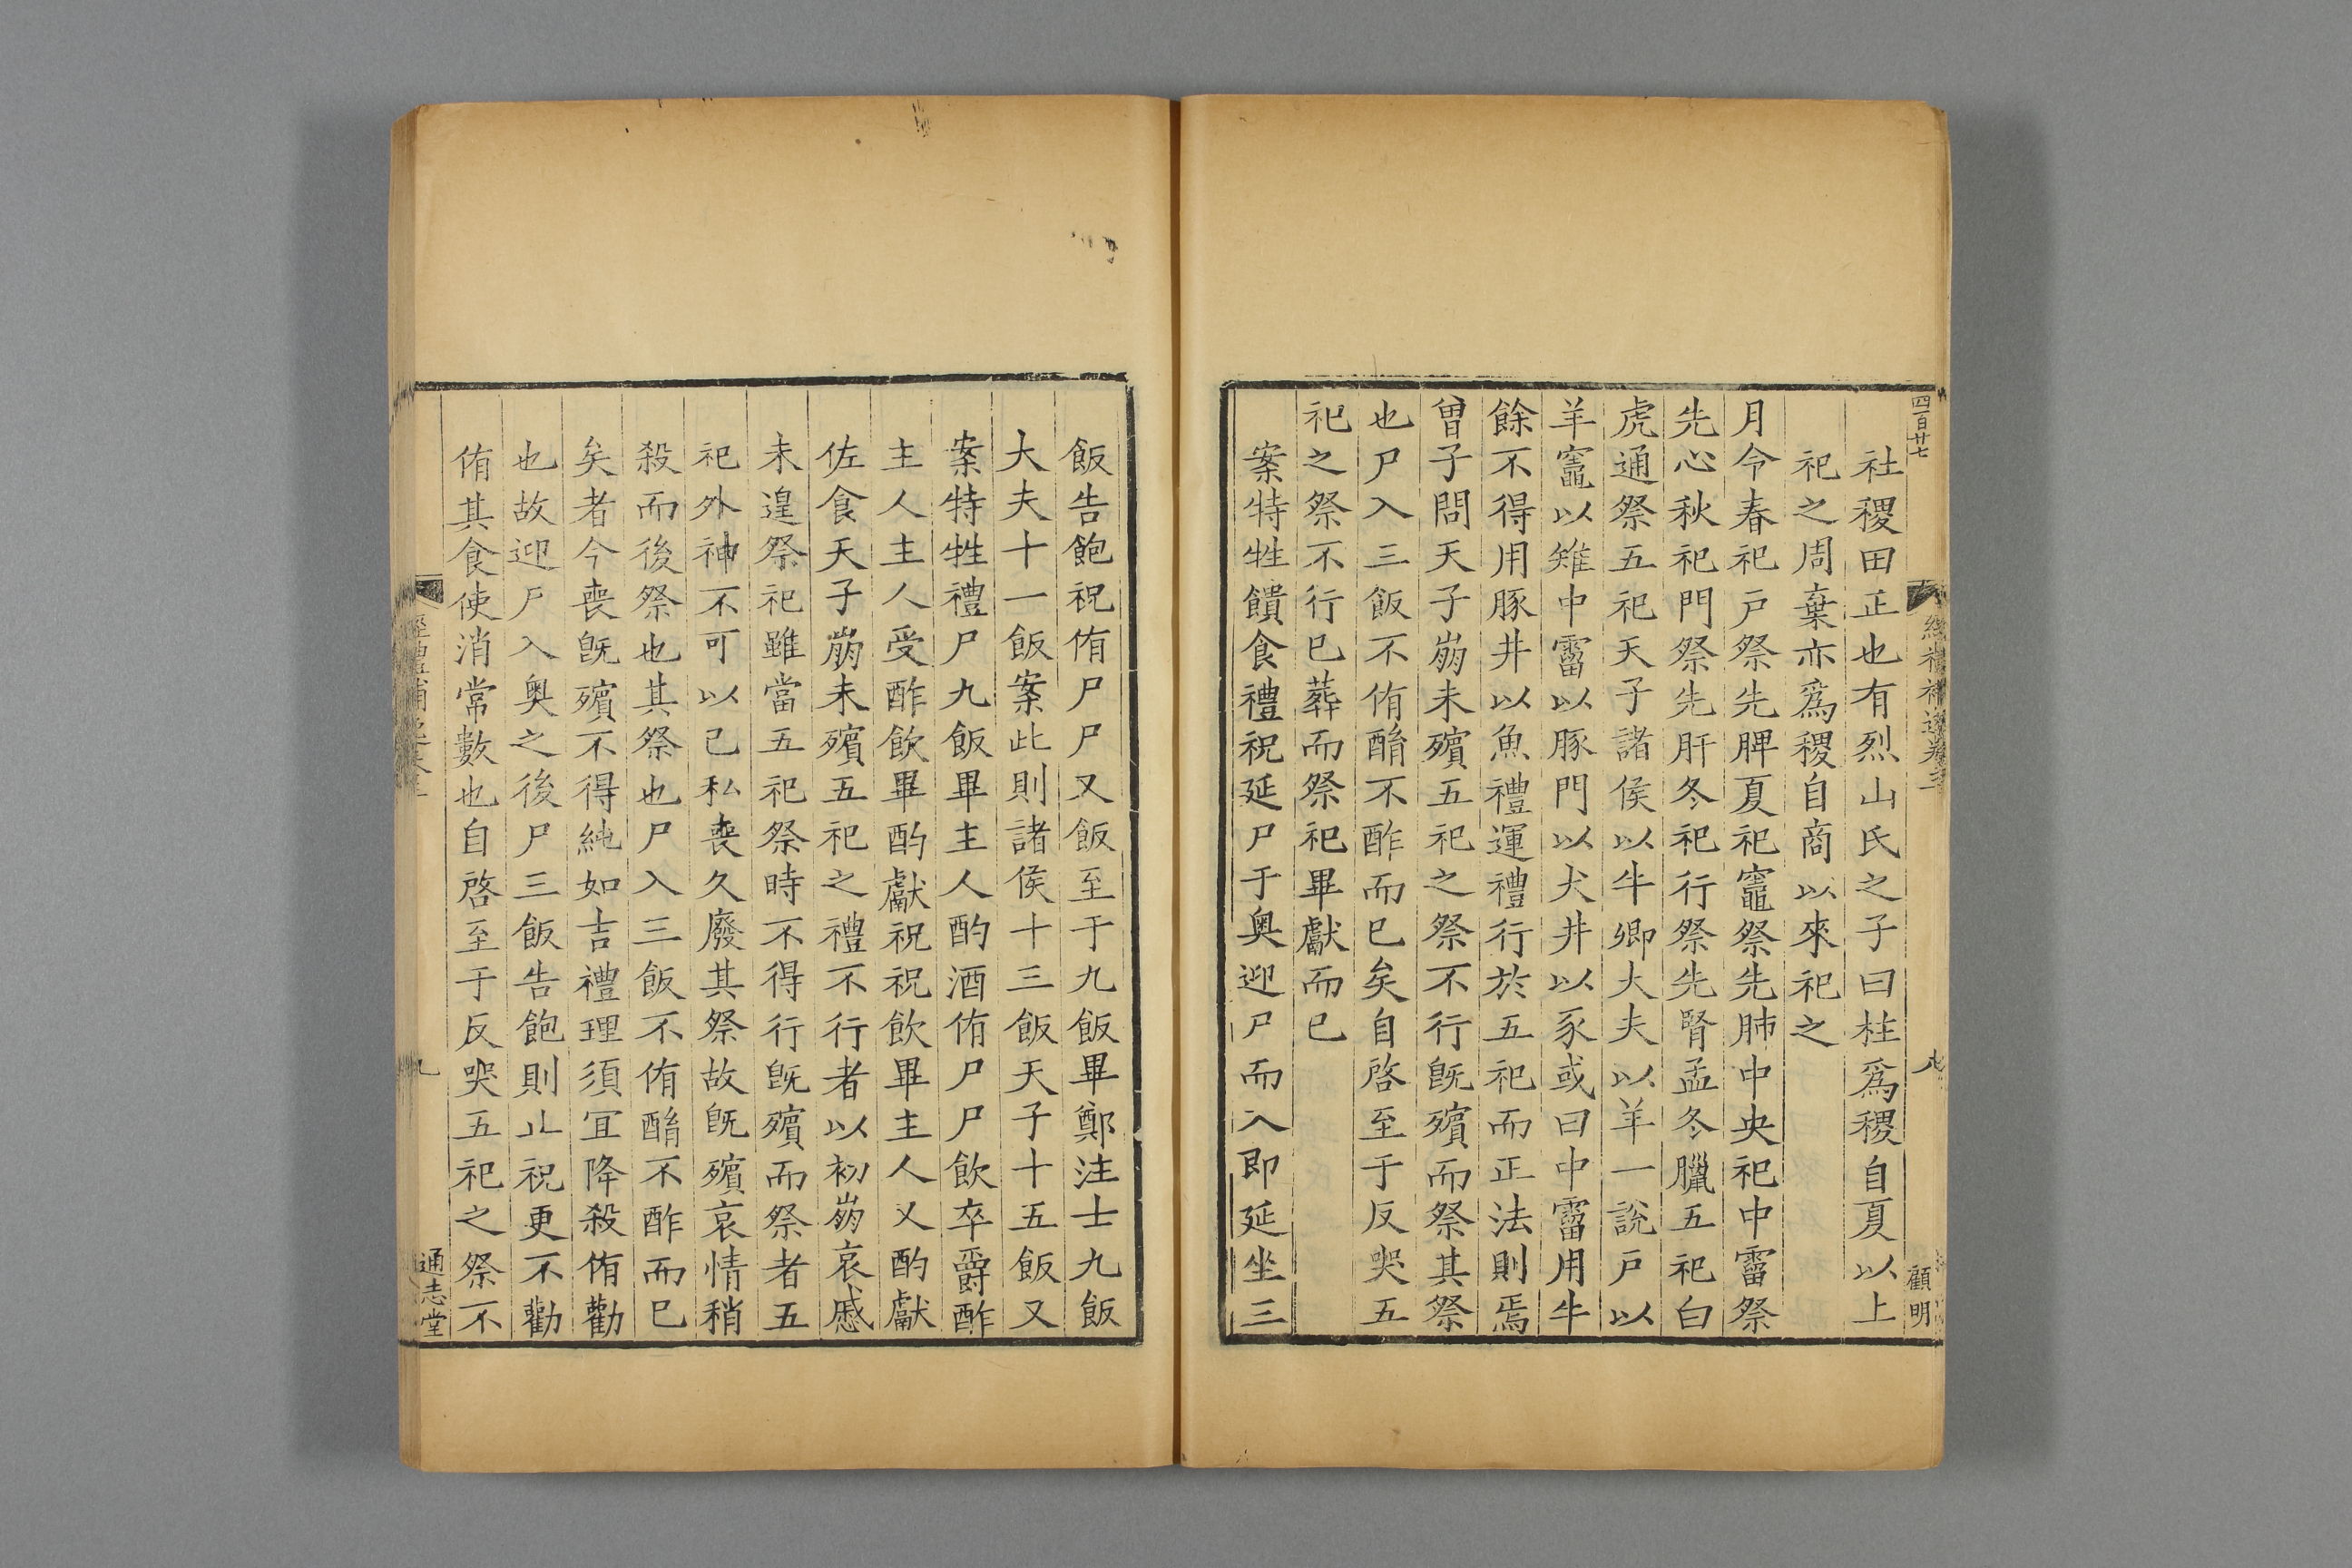 四百廿七
社稷田正也有烈山氏之子曰柱爲稷自夏以上
祀之周棄亦爲稷自商以來祀之
月令春祀戸祭先脾夏祀竈祭先肺中央祀中霤祭
先心秋祀門祭先肝冬祀行祭先腎孟冬臘五祀白
虎通祭五祀天子諸侯以牛卿大夫以羊一說戸以
羊竈以雉中霤以豚門以犬井以豕或曰中霤用牛
餘不得用豚井以魚禮運禮行於五祀而正法則焉
曾子問天子崩未殯五祀之祭不行旣殯而祭其祭
也尸入三飯不侑酳不酢而已矣自啓至于反哭五
祀之祭不行已葬而祭祀畢獻而已
案特牲饋食禮祝延尸于奥迎尸而入即延坐三
顧明
飯告飽祝侑尸尸又飯至于九飯畢鄭注士九飯
大夫十一飯案此則諸侯十三飯天子十五飯又
案特牲禮尸九飯畢主人酌酒侑尸尸飲卒爵酢
主人主人受酢飲畢酌獻祝祝飲畢主人又酌獻
佐食天子崩未殯五祀之禮不行者以初崩哀慼
未遑祭祀雖當五祀祭時不得行旣殯而祭者五
祀外神不可以己私喪久廢其祭故旣殯哀情稍
殺而後祭也其祭也尸入三飯不侑酳不酢而已
矣者今喪旣殯不得純如吉禮理須宜降殺侑勸
也故迎尸入奥之後尸三飯告飽則止祝更不勸
侑其食使消常數也自啓至于反哭五祀之祭不
通志堂